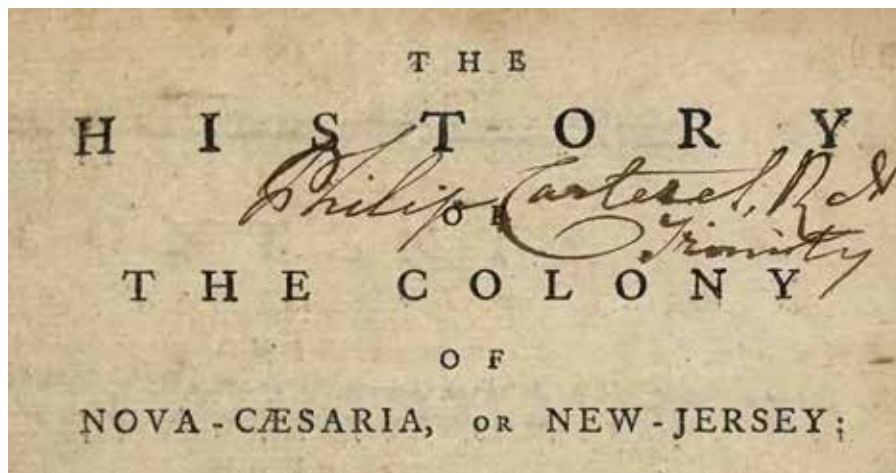 THE
HISTORY
Philip Carteret, R.N
OF
Trinity
THE COLONY
OF
NOVA-CÆSARIA, OR NEW-JERSEY;